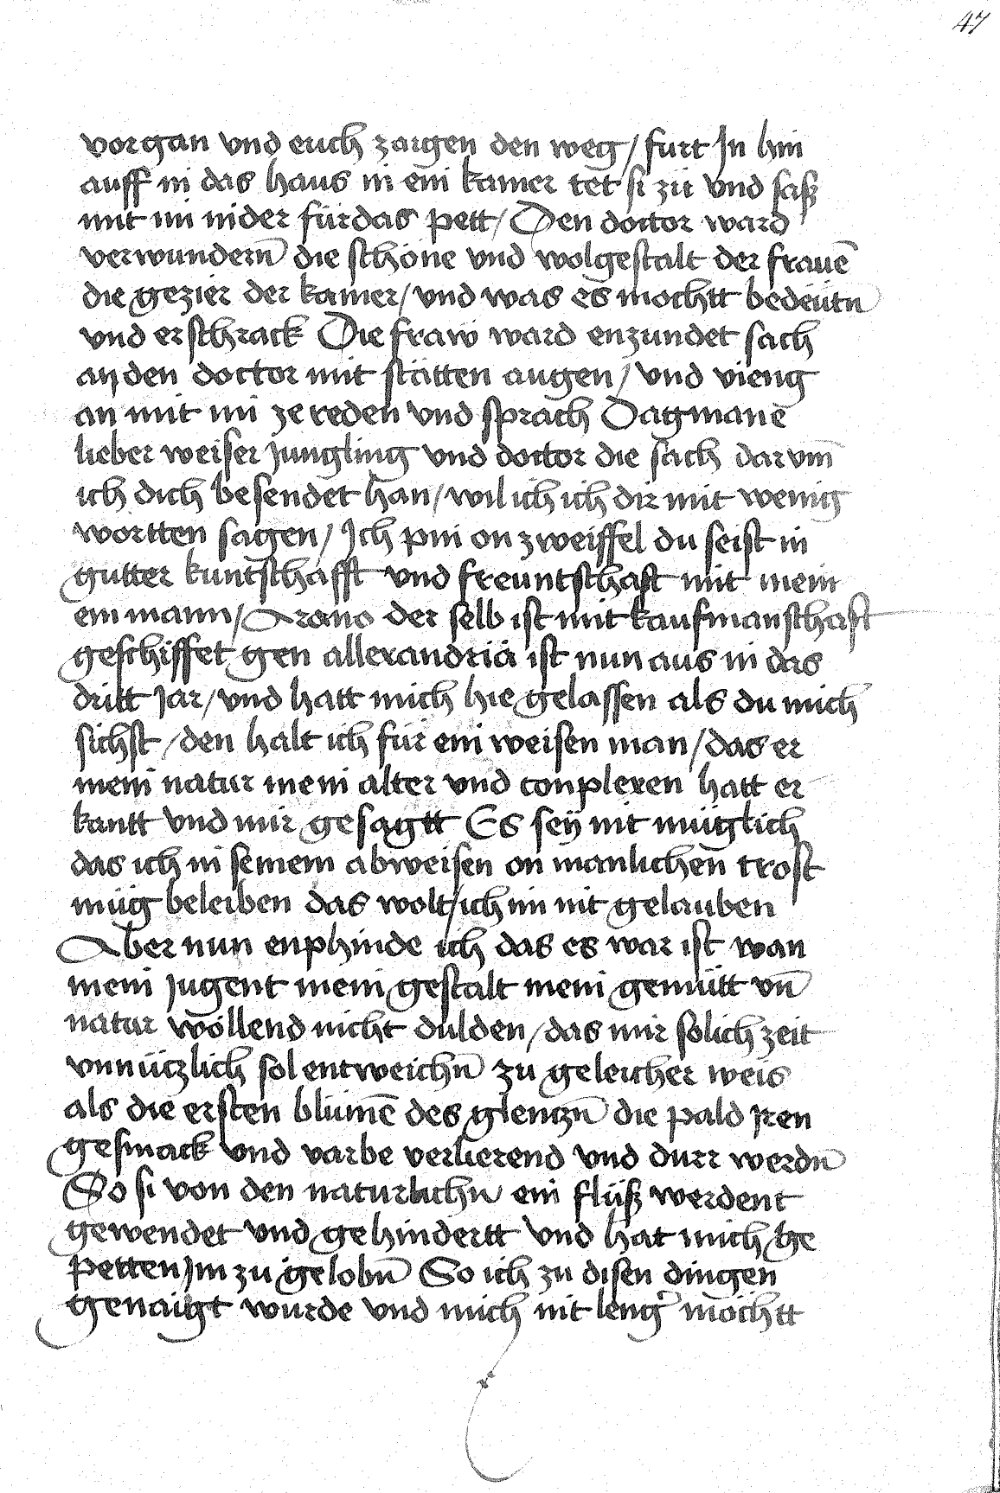 47
vorgan vnd euch zaigen den weg / furt In hin
auff in das haus in ein kamer tet si zü vnd saß
mit im nider für das pett / Den doctor ward
verwundern̄ die schöne vnd wolgestalt der frauē
die gezier der kamer / vnd was es möchtt bedeütn̄
vnd erschrack Die fraw ward enzundet sach
an den doctor mit stätten augen / vnd vieng
an mit im ze reden vnd sprach Dagmane
lieber weiser Jungling vnd doctor die sach darvm̄
ich dich besendet han / wil ich ich dir mit wenig
wortten sagen / Ich pin on zweiffel du seist in
gutter kuntschafft vnd freuntschaft mit mein
em mann / Arono der selb ist mit kaufmanschaft
geschiffet gen allexandriä ist nun aus in das
dritt Jar / vnd hatt mich hie gelassen als du mich
sichst / den halt ich für ein weisen man / das er
mein natur mein alter vnd conplexen hatt er
kantt vnd mir gesagtt Es seÿ nit müglich
das ich in seinem abweisen on manlichen trost
müg beleiben das wolt / ich im nit gelauben
Aber nun enphinde ich das es war ist wan
mein Jugent mein gestalt mein gemütt vn̄
natur wöllend nicht dulden / das mir solich zeit
vnnüczlich sol entweichn̄ zu geleicher weis
als die ersten blümē des glenczn̄ die pald Iren
gesmack vnd varbe verlierend vnd durr werdn̄
So si von den naturlichn̄ ein flüß werdent
gewendet vnd gehindertt vnd hat mich ge
petten Im zu gelobn̄ So ich zu disen dingen
genaigt wurde vnd mich nit leng' möchtt